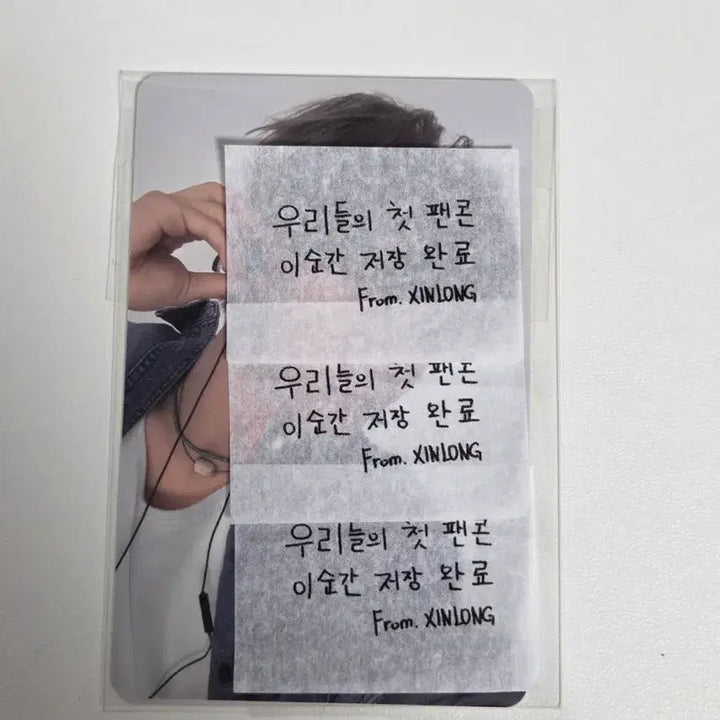 우리들의 첫 팬콘
이순간 저장 완료
From. XINLONG
우리들의 첫 팬콘
이순간 저장 완료
From. XINLONG
우리들의 첫 팬콘
이순간 저장 완료
From. XINLONG